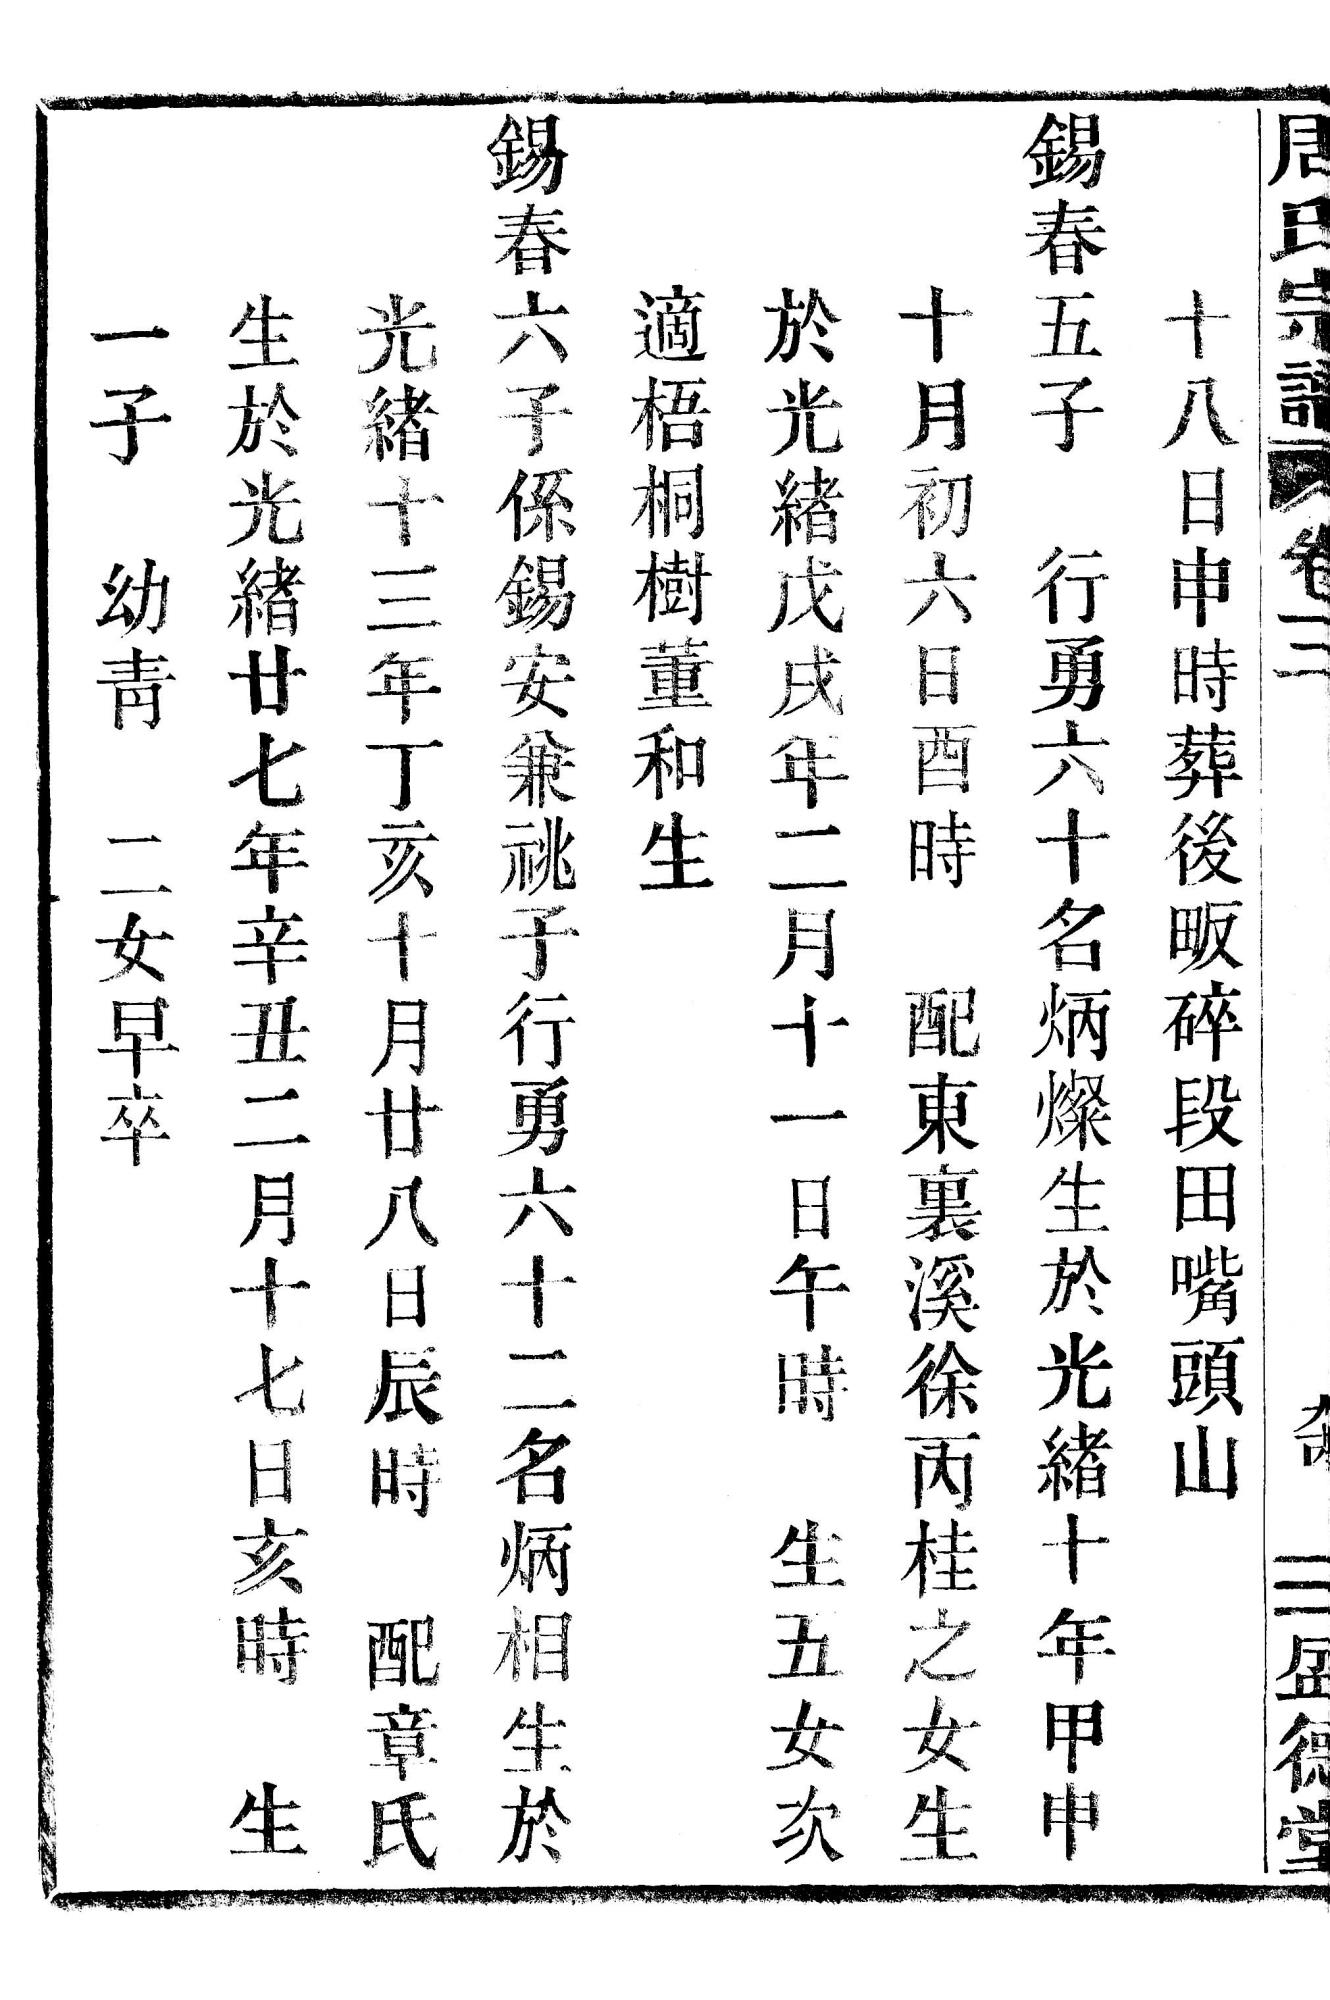 周氏宗譜 卷三 三盛德堂
十八日申時葬後畈碎段田嘴頭山
錫春五子 行勇六十名炳燦生於光緒十年甲申
十月初六日酉時 配東裏溪徐丙桂之女生
於光緒戊戌年二月十一日午時 生五女次
適梧桐樹董和生
錫春六子係錫安兼祧子行勇六十二名炳相生於
光緒十三年丁亥十月廿八日辰時 配章氏
生於光緒廿七年辛丑二月十七日亥時 生
一子 幼青 二女早卒